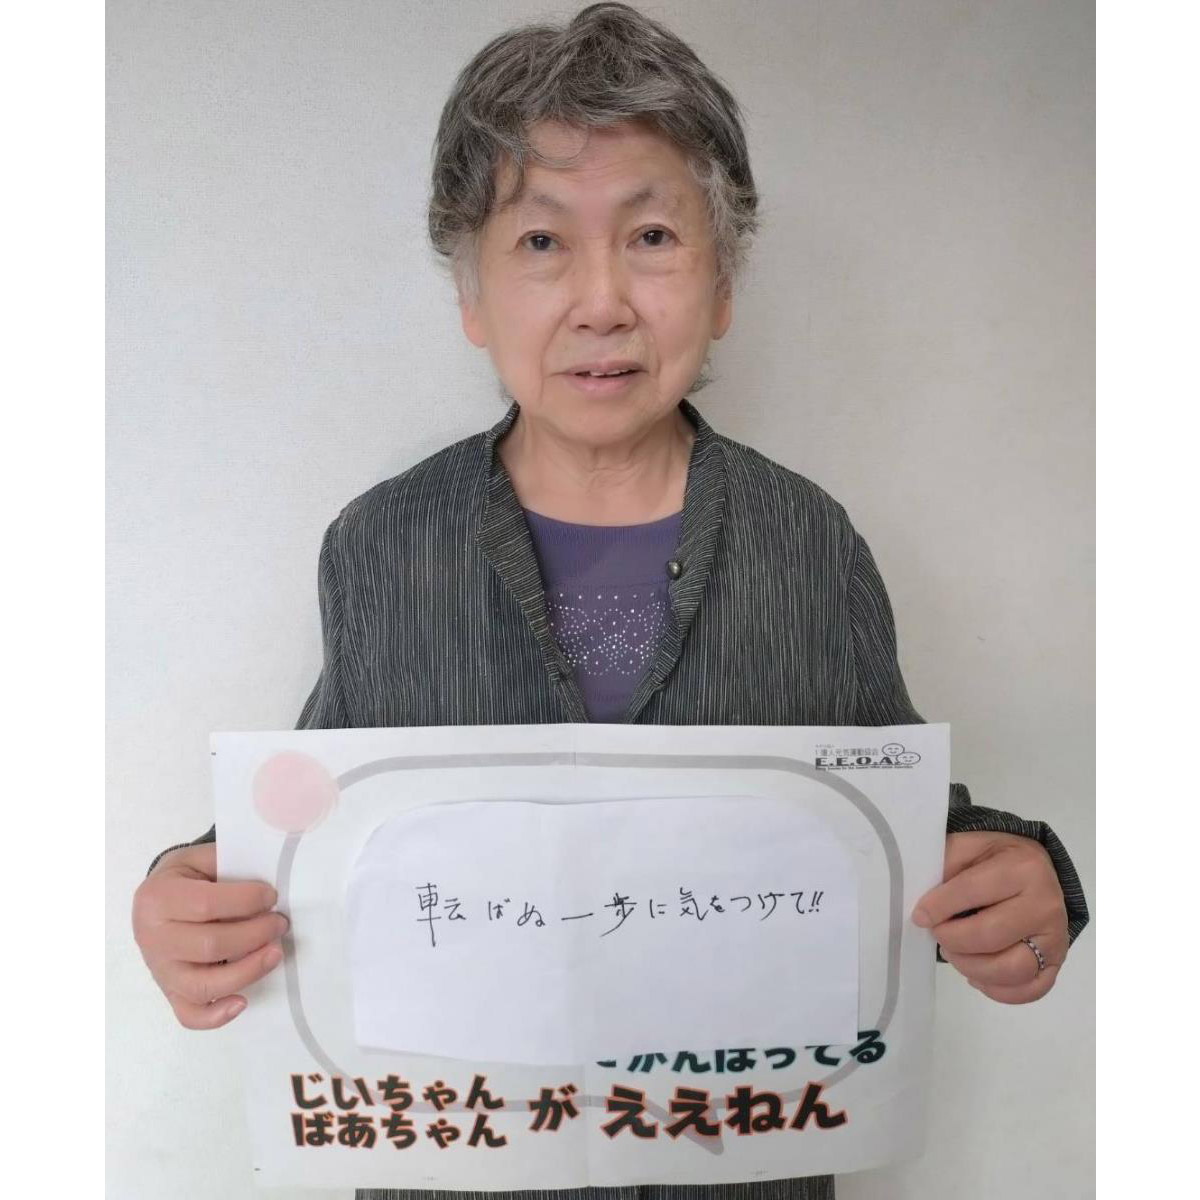 1億人元気運動協会
E.E.O.A.
転ばぬ一歩に気をつけて!!
がんばってる
じいちゃん
ばあちゃん
が ええねん